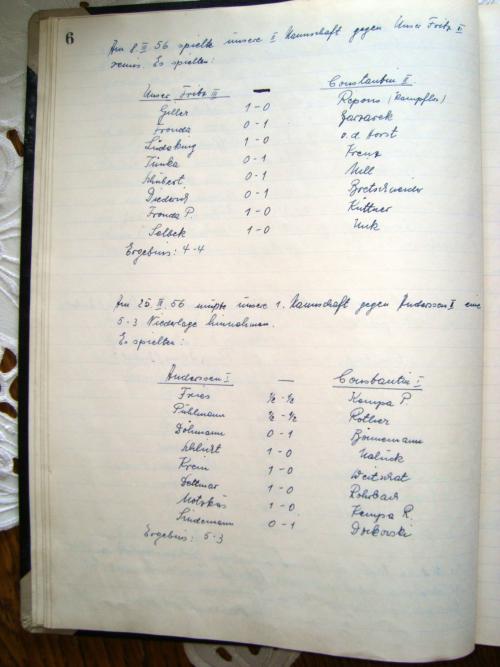 6
Am 8. III 56 spielte unsere II Mannschaft gegen Unser Fritz II
remis. Es spielten:
Unser Fritz III — Constantin II
Geller 1-0 Repons (kampflos)
Fronda 0-1
1-0 v.d. Horst
Funka 0-1 Kreuz
Schubert 0-1 Null
Diederich 0-1 Bretschneider
Fronda P. 1-0 Küttner
Selbek 1-0 Unk
Ergebnis: 4-4
Am 25 III. 56 mußte unsere 1. Mannschaft gegen Anderssen I eine
5-3 Niederlage hinnehmen.
Es spielten:
Anderssen I — Constantin I
Fries ½-½ Kempa P.
Pühlmann ½-½ Rother
Döhmann 0-1 Bönnemann
Schlicht 1-0
Krem 1-0
Dettmar 1-0 Rohrbach
Motzkus 1-0 Kempa R.
Lindemann 0-1 Dzikowski
Ergebnis: 5-3